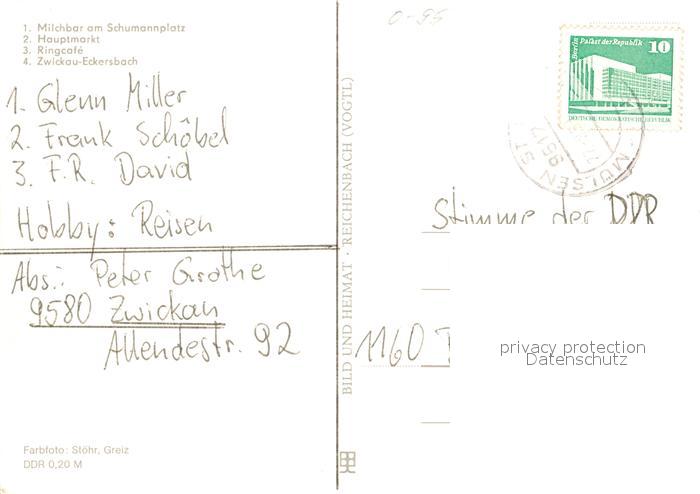 1. Milchbar am Schumannplatz
2. Hauptmarkt
3. Ringcafé
4. Zwickau-Eckersbach
1. Glenn Miller
2. Frank Schöbel
3. F.R. David
Hobby: Reisen
Abs.: Peter Grothe
9580 Zwickau
Allendestr. 92
Farbfoto: Stöhr, Greiz
DDR 0,20 M
BILD UND HEIMAT · REICHENBACH (VOGTL)
0-95
Berlin Palast der Republik
10
DEUTSCHE DEMOKRATISCHE REPUBLIK
MÜLSEN ST
9517
Stimme der DDR
1160
privacy protection
Datenschutz